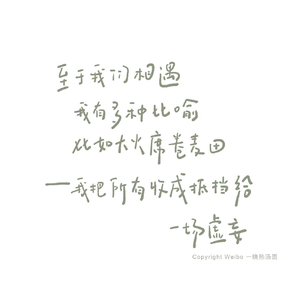 至于我们相遇
我有多种比喻
比如大火席卷麦田
——我把所有收成抵挡给
一场虚妄
Copyright Weibo 一嗰煎汤圆